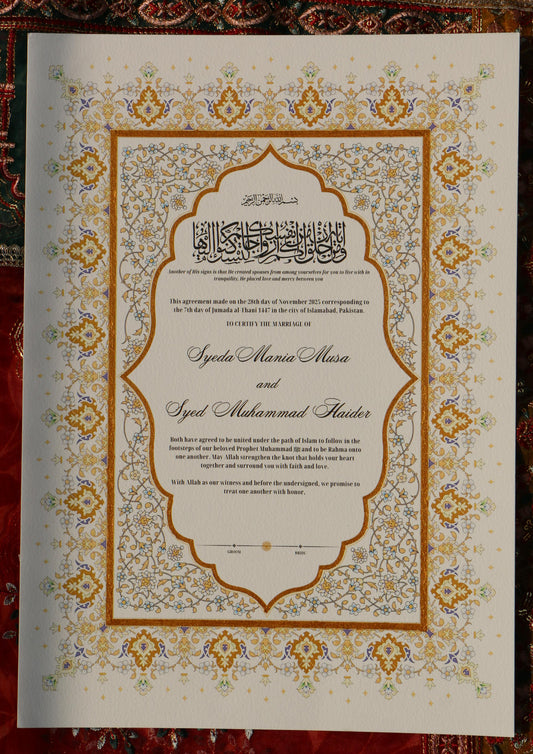 بسم الله الرحمن الرحيم
Another of His signs is that He created spouses from among yourselves for you to live with in
tranquility, He placed love and mercy between you
This agreement made on the 28th day of November 2025 corresponding to
the 7th day of Jumada al-Thani 1447 in the city of Islamabad, Pakistan.
TO CERTIFY THE MARRIAGE OF
Syeda Mania Musa
and
Syed Muhammad Haider
Both have agreed to be united under the path of Islam to follow in the
footsteps of our beloved Prophet Muhammad ﷺ and to be Rahma onto
one another. May Allah strengthen the knot that holds your heart
together and surround you with faith and love.
With Allah as our witness and before the undersigned, we promise to
treat one another with honor.
GROOM BRIDE